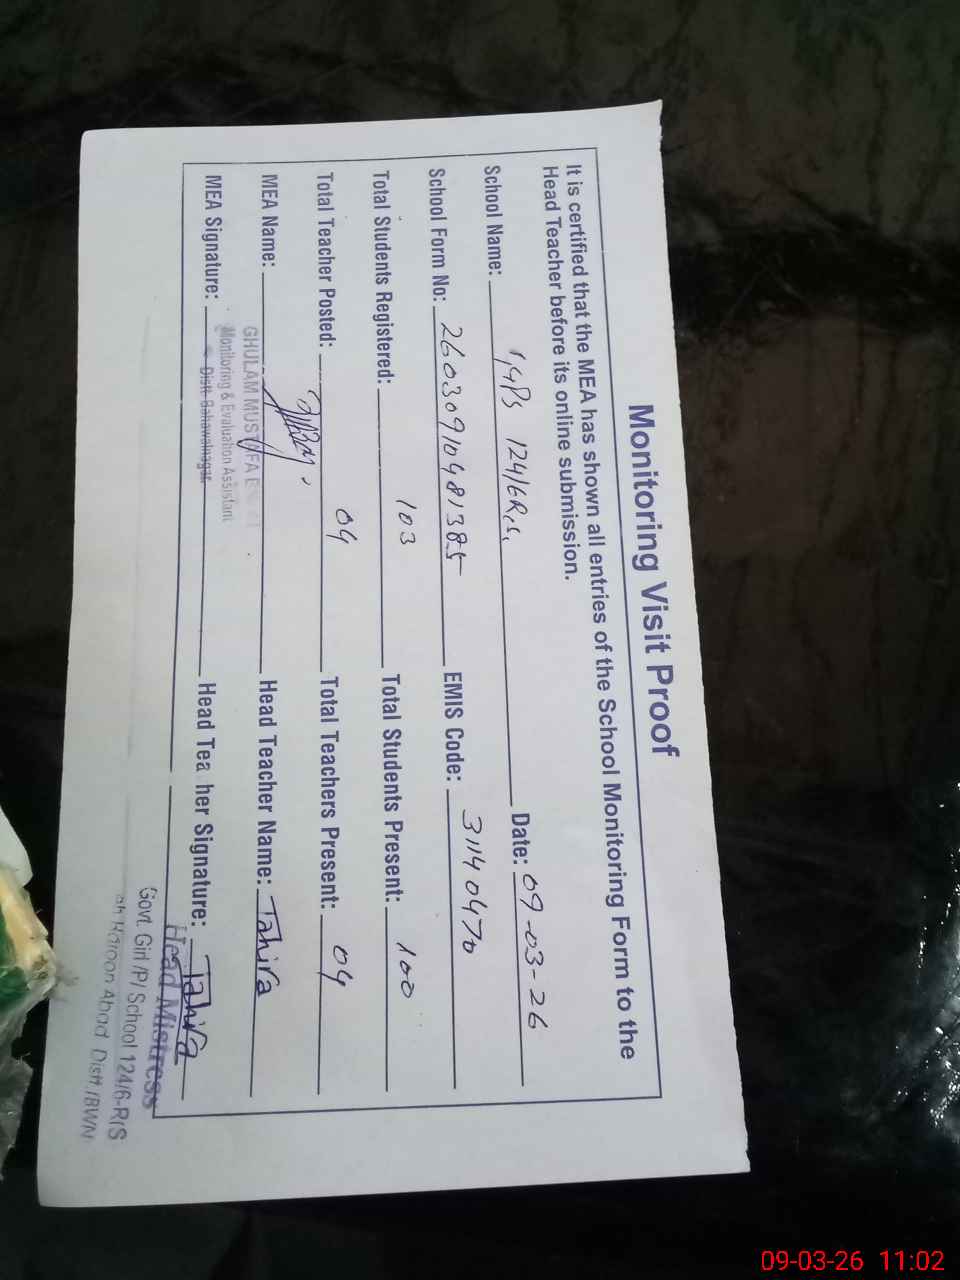 Monitoring Visit Proof
It is certified that the MEA has shown all entries of the School Monitoring Form to the
Head Teacher before its online submission.
School Name: GGPS 124/6R/S. Date: 09-03-26
School Form No: 26030910481385 EMIS Code: 31140470
Total Students Registered: 103 Total Students Present: 100
Total Teacher Posted: 04 Total Teachers Present: 04
MEA Name: GHULAM MUSTAFA Head Teacher Name: Tahira
Monitoring & Evaluation Assistant
MEA Signature: Distt. Bahawalnagar Head Tea her Signature: Tahira
Head Mistress
Govt. Girl /P/ School 124/6-R/S
Haroon Abad Distt./BWN
09-03-26 11:02